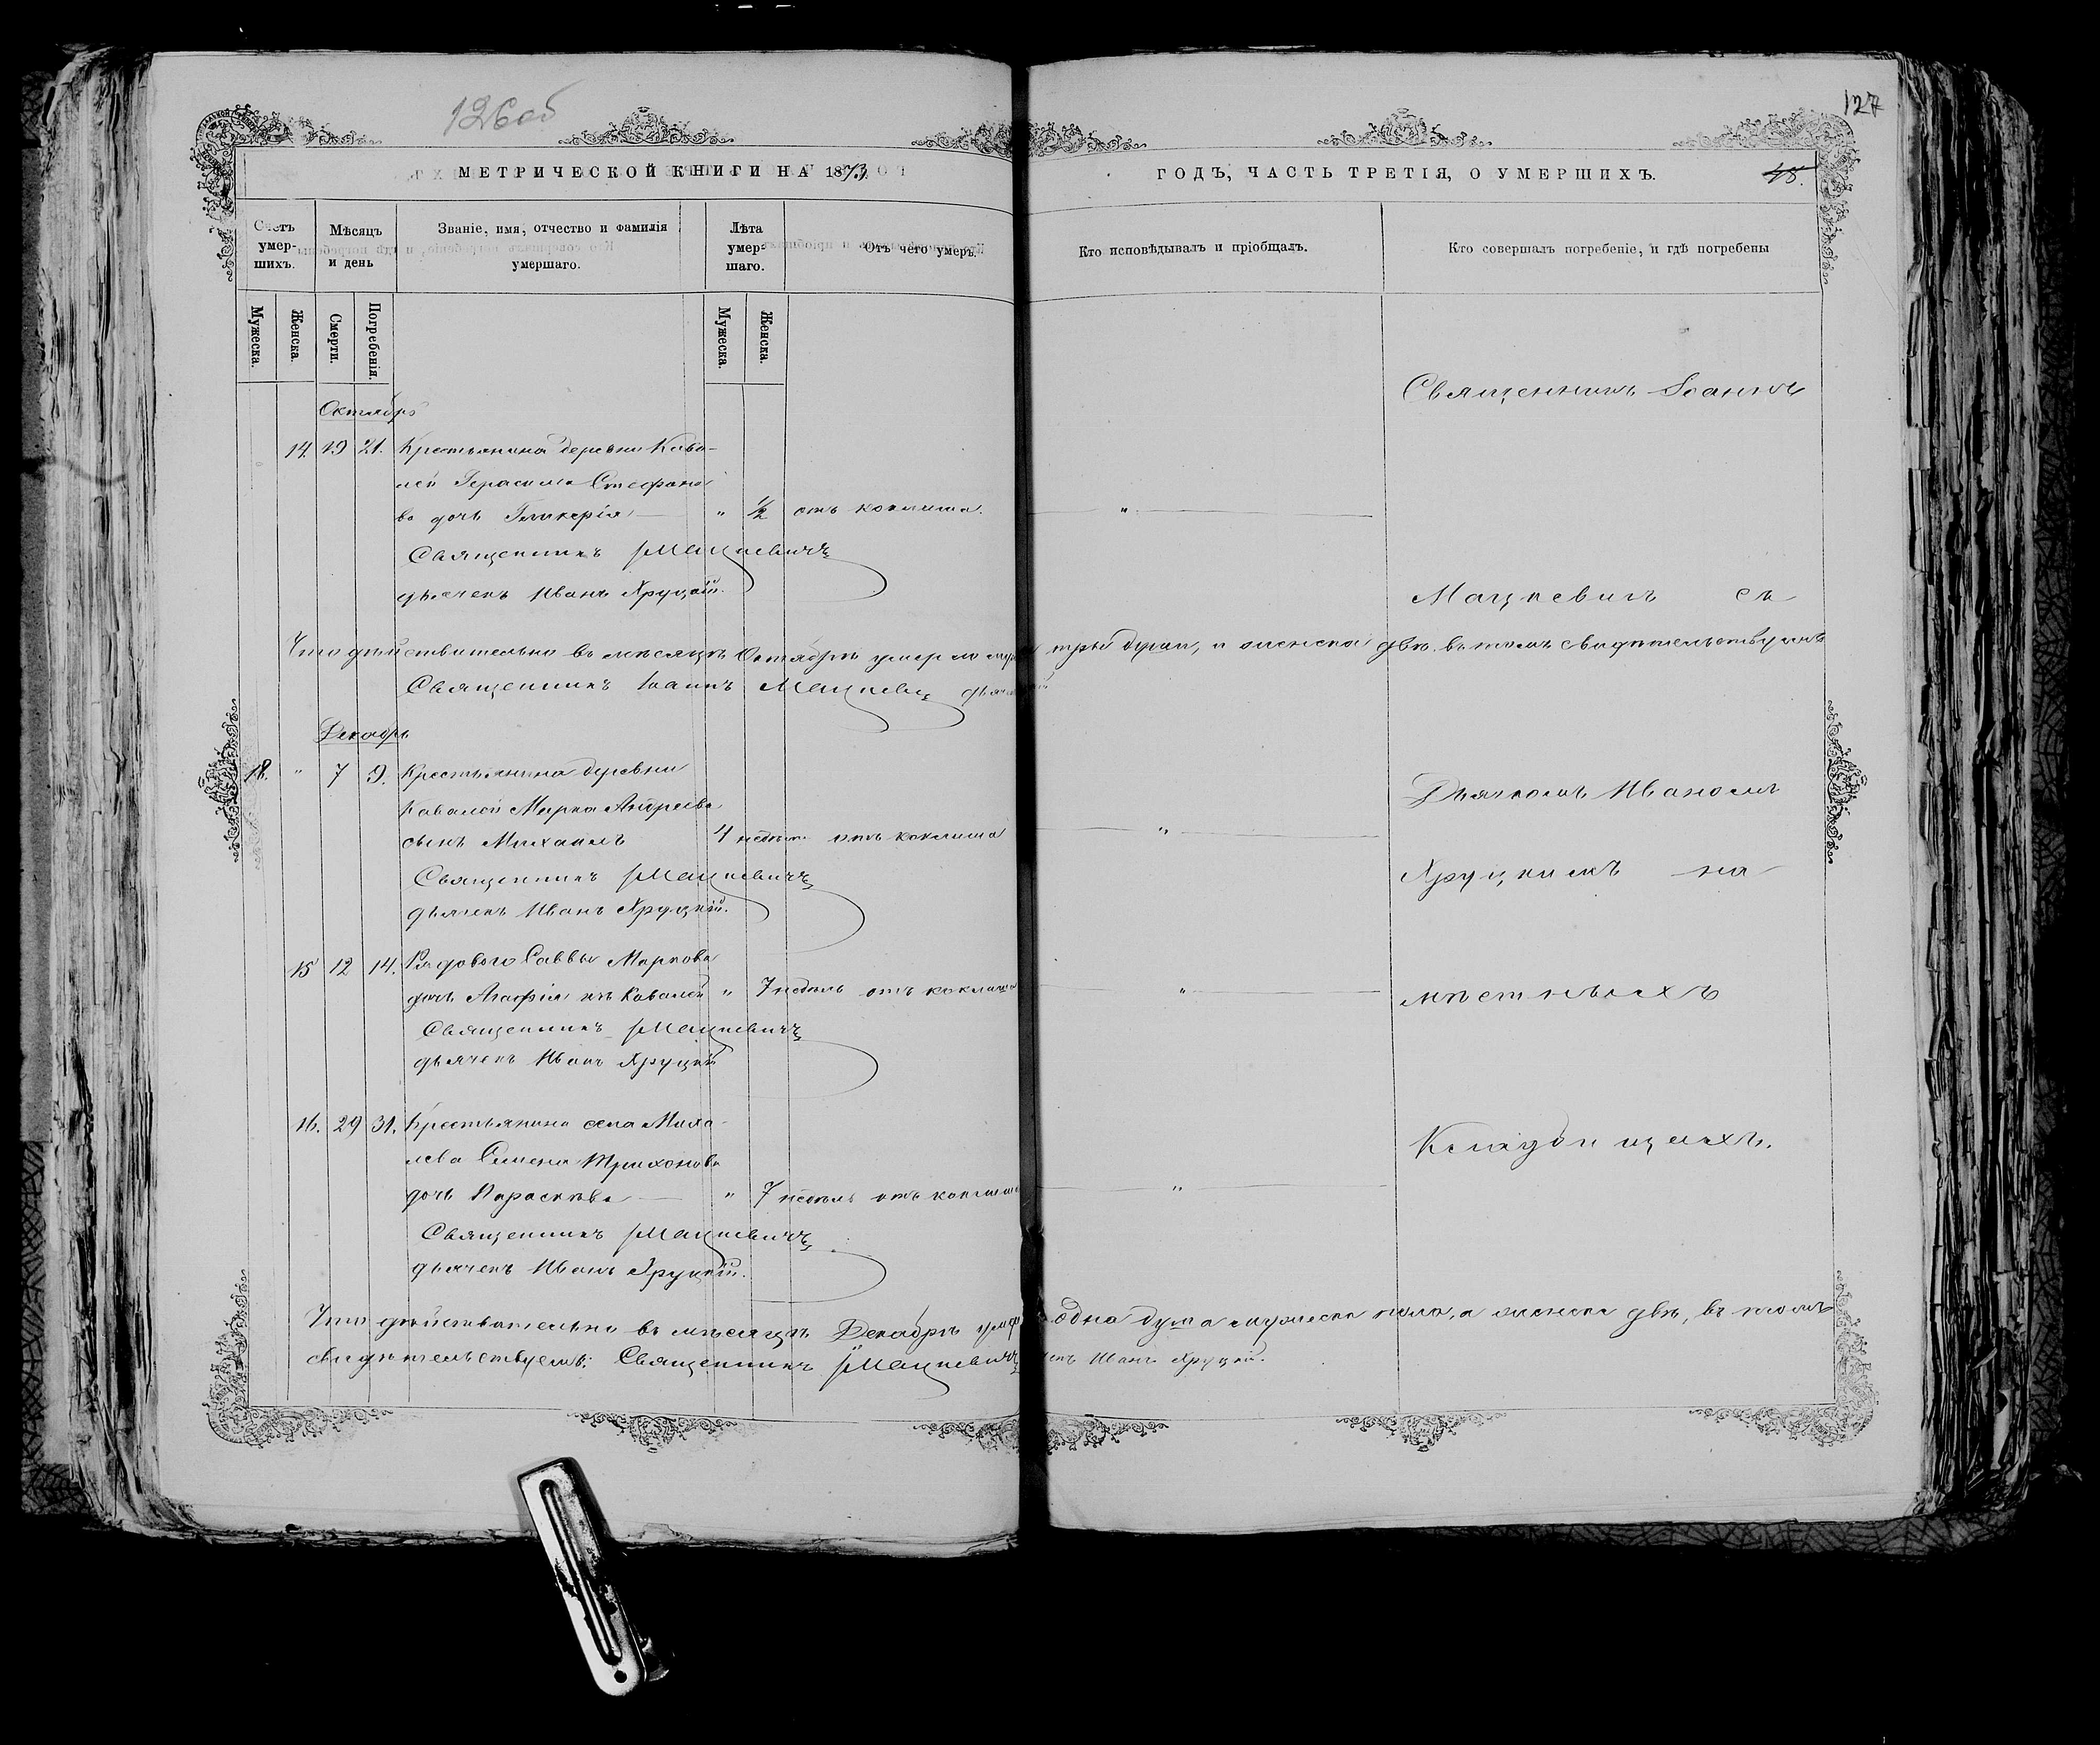 126об
127
МЕТРИЧЕСКОЙ КНИГИ НА 1873
ГОДЪ, ЧАСТЬ ТРЕТІЯ, О УМЕРШИХЪ.
48.
Счетъ умер-шихъ.
Мѣсяцъ и день
Званіе, имя, отчество и фамилія умершаго.
Лѣта умер-шаго.
Отъ чего умеръ.
Кто исповѣдывалъ и пріобщалъ.
Кто совершалъ погребеніе, и гдѣ погребены
Мужеска.
Женска.
Смерти.
Погребенія.
Мужеска.
Женска.
Октябрь
14. 19 21. Крестьянина деревни Кава-
лей Герасима Стефано
ва дочь Гликерія — " 1/2 отъ коклюша. "
Священникъ Мацкевичъ
дьячекъ Иванъ Хруцкій.
Что дѣйствительно въ мѣсяцѣ Октябрѣ умерло три души, и женска двѣ. въ томъ свидѣтельствуемъ
Священникъ Іоаннъ Мацкевич
Декабрь
18. " 7 9. Крестьянина деревни
Кавалей Марка Андреева
сынъ Михаилъ 4 недѣли отъ коклюша "
Священникъ Мацкевичъ
дьячекъ Иванъ Хруцкій.
15 12 14. Рядового Саввы Маркова
дочь Агафія изъ Кавалей " 7 недѣль отъ коклюша "
Священникъ Мацкевичъ
дьячекъ Иванъ Хруцкій
16. 29 31. Крестьянина села Миха
лева Семена Трихонова
дочь Параскева — " 7 недѣль отъ коклюша "
Священникъ Мацкевичъ
дьячекъ Иванъ Хруцкій.
Что дѣйствительно въ мѣсяцѣ Декабрѣ одна душа мужеска пола, а женска двѣ, въ томъ
свидѣтельствуемъ: Священникъ Мацкевичъ Иванъ Хруцкій.
Священникъ Іоаннъ
Мацкевичъ съ
Дьячкомъ Иваномъ
Хруцкимъ на
мѣстныхъ
Кладбищахъ.